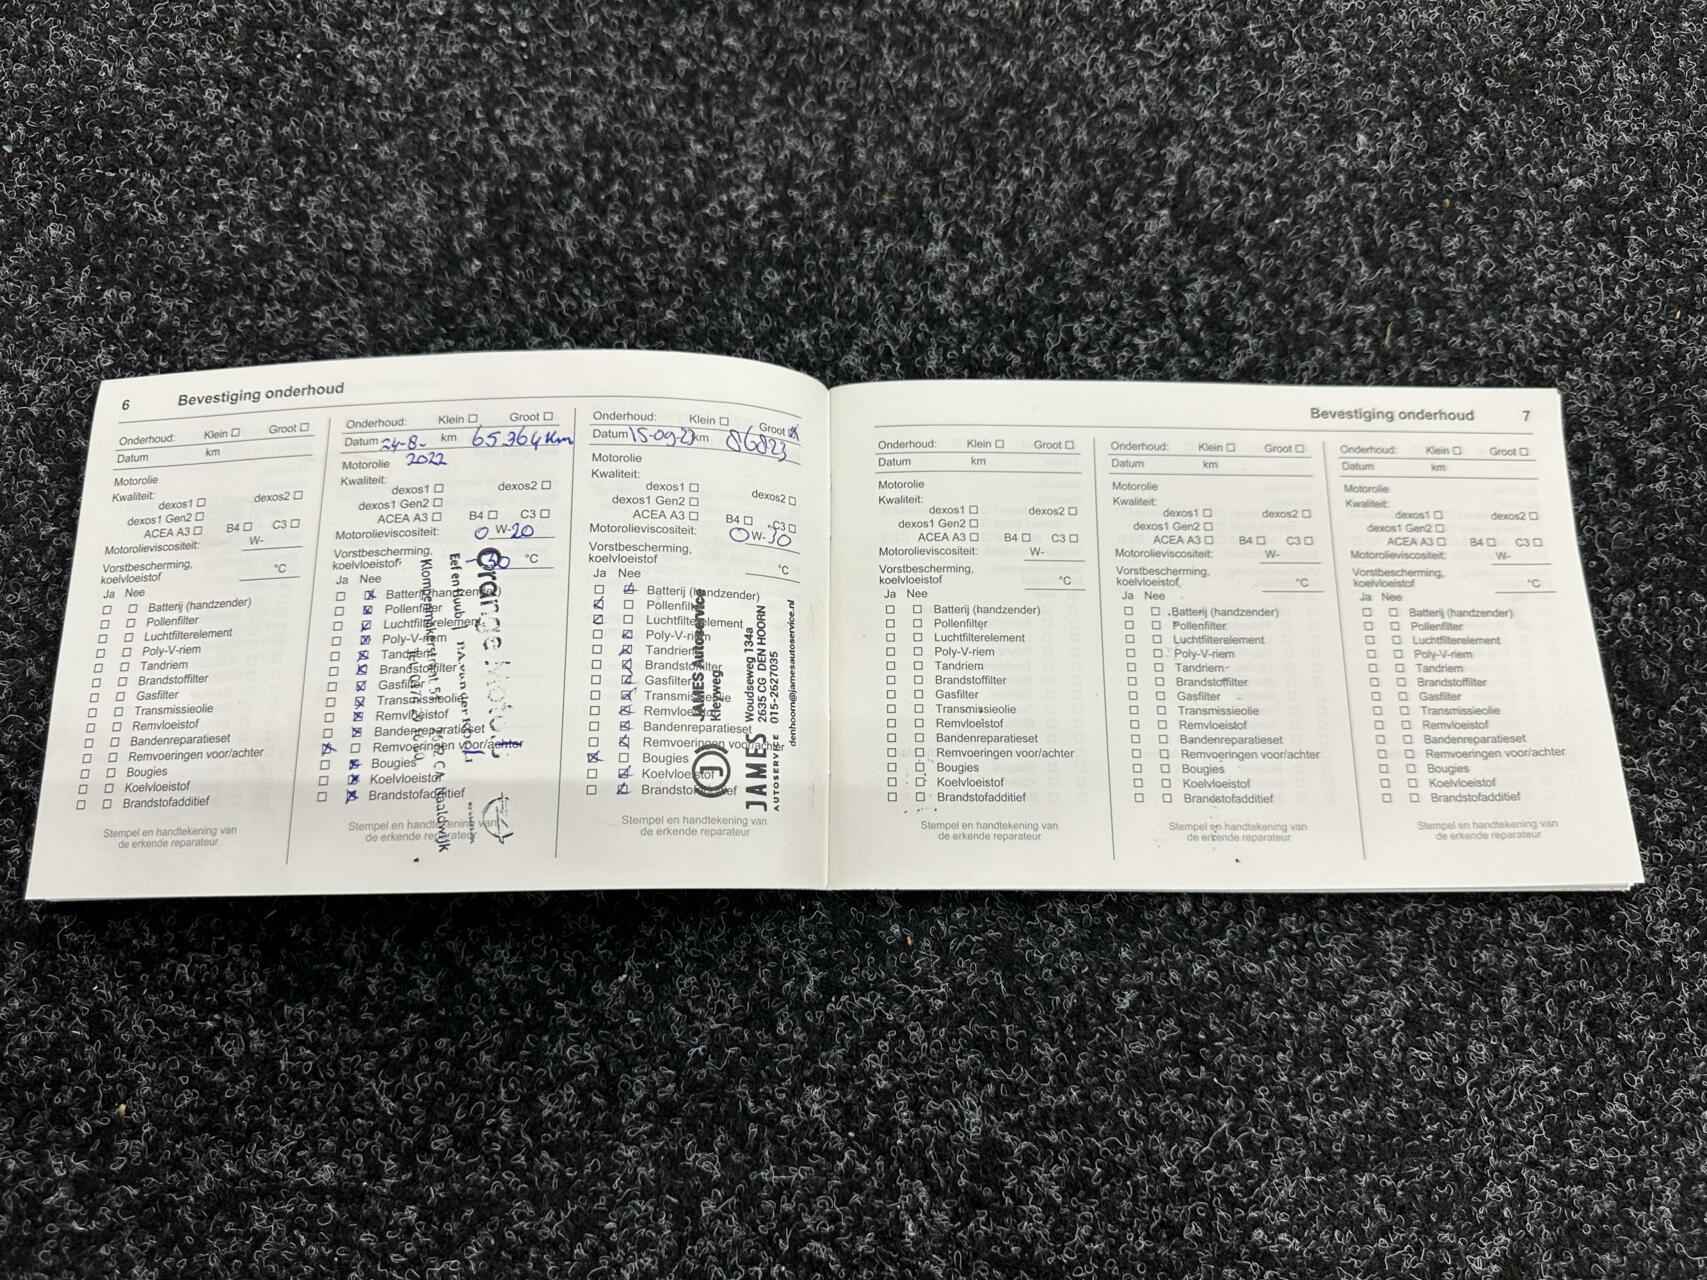 6 Bevestiging onderhoud
Onderhoud: Klein ☐ Groot ☐
Datum km
Motorolie
Kwaliteit:
dexos1 ☐ dexos2 ☐
dexos1 Gen2 ☐
ACEA A3 ☐ B4 ☐ C3 ☐
Motorolieviscositeit: W-
Vorstbescherming,
koelvloeistof °C
Ja Nee
☐ ☐ Batterij (handzender)
☐ ☐ Pollenfilter
☐ ☐ Luchtfilterelement
☐ ☐ Poly-V-riem
☐ ☐ Tandriem
☐ ☐ Brandstoffilter
☐ ☐ Gasfilter
☐ ☐ Transmissieolie
☐ ☐ Remvloeistof
☐ ☐ Bandenreparatieset
☐ ☐ Remvoeringen voor/achter
☐ ☐ Bougies
☐ ☐ Koelvloeistof
☐ ☐ Brandstofadditief
Stempel en handtekening van
de erkende reparateur
Onderhoud: Klein ☐ Groot ☐
Datum 24-8- km 65364 km
Motorolie 2022
Kwaliteit:
dexos1 ☐ dexos2 ☐
dexos1 Gen2 ☐
ACEA A3 ☐ B4 ☐ C3 ☐
Motorolieviscositeit: 0 W-20
Vorstbescherming,
koelvloeistof -30 °C
Ja Nee
☒ Batterij (handzender)
☒ Pollenfilter
☒ Luchtfilterelement
☒ Poly-V-riem
☒ Tandriem
☒ Brandstoffilter
☒ Gasfilter
☒ Transmissieolie
☒ Remvloeistof
☒ Bandenreparatieset
☒ ☐ Remvoeringen voor/achter
☐ ☒ Bougies
☐ ☒ Koelvloeistof
☐ ☒ Brandstofadditief
Stempel en handtekening van
de erkende reparateur
Naaldwijk
Onderhoud: Klein ☐ Groot ☒
Datum 15-09-23 km 86823
Motorolie
Kwaliteit:
dexos1 ☐ dexos2 ☐
dexos1 Gen2 ☐
ACEA A3 ☐ B4 ☐ C3 ☐
Motorolieviscositeit: 0 W-30
Vorstbescherming,
koelvloeistof °C
Ja Nee
☐ ☒ Batterij (handzender)
☒ ☐ Pollenfilter
☒ ☐ Luchtfilterelement
☐ ☒ Poly-V-riem
☐ ☒ Tandriem
☐ ☒ Brandstoffilter
☐ ☒ Gasfilter
☐ ☒ Transmissieolie
☐ ☒ Remvloeistof
☐ ☒ Bandenreparatieset
☐ ☒ Remvoeringen voor/achter
☒ ☐ Bougies
☐ ☒ Koelvloeistof
☐ ☒ Brandstofadditief
Stempel en handtekening van
de erkende reparateur
JAMES Autoservice
Kleyweg
Woudseweg 134a
2635 CG DEN HOORN
015-2627035
denhoorn@jamesautoservice.nl
JAMES
AUTOSERVICE
Bevestiging onderhoud 7
Onderhoud: Klein ☐ Groot ☐
Datum km
Motorolie
Kwaliteit:
dexos1 ☐ dexos2 ☐
dexos1 Gen2 ☐
ACEA A3 ☐ B4 ☐ C3 ☐
Motorolieviscositeit: W-
Vorstbescherming,
koelvloeistof °C
Ja Nee
☐ ☐ Batterij (handzender)
☐ ☐ Pollenfilter
☐ ☐ Luchtfilterelement
☐ ☐ Poly-V-riem
☐ ☐ Tandriem
☐ ☐ Brandstoffilter
☐ ☐ Gasfilter
☐ ☐ Transmissieolie
☐ ☐ Remvloeistof
☐ ☐ Bandenreparatieset
☐ ☐ Remvoeringen voor/achter
☐ ☐ Bougies
☐ ☐ Koelvloeistof
☐ ☐ Brandstofadditief
Stempel en handtekening van
de erkende reparateur
Onderhoud: Klein ☐ Groot ☐
Datum km
Motorolie
Kwaliteit:
dexos1 ☐ dexos2 ☐
dexos1 Gen2 ☐
ACEA A3 ☐ B4 ☐ C3 ☐
Motorolieviscositeit: W-
Vorstbescherming,
koelvloeistof °C
Ja Nee
☐ ☐ Batterij (handzender)
☐ ☐ Pollenfilter
☐ ☐ Luchtfilterelement
☐ ☐ Poly-V-riem
☐ ☐ Tandriem
☐ ☐ Brandstoffilter
☐ ☐ Gasfilter
☐ ☐ Transmissieolie
☐ ☐ Remvloeistof
☐ ☐ Bandenreparatieset
☐ ☐ Remvoeringen voor/achter
☐ ☐ Bougies
☐ ☐ Koelvloeistof
☐ ☐ Brandstofadditief
Stempel en handtekening van
de erkende reparateur
Onderhoud: Klein ☐ Groot ☐
Datum km
Motorolie
Kwaliteit:
dexos1 ☐ dexos2 ☐
dexos1 Gen2 ☐
ACEA A3 ☐ B4 ☐ C3 ☐
Motorolieviscositeit: W-
Vorstbescherming,
koelvloeistof °C
Ja Nee
☐ ☐ Batterij (handzender)
☐ ☐ Pollenfilter
☐ ☐ Luchtfilterelement
☐ ☐ Poly-V-riem
☐ ☐ Tandriem
☐ ☐ Brandstoffilter
☐ ☐ Gasfilter
☐ ☐ Transmissieolie
☐ ☐ Remvloeistof
☐ ☐ Bandenreparatieset
☐ ☐ Remvoeringen voor/achter
☐ ☐ Bougies
☐ ☐ Koelvloeistof
☐ ☐ Brandstofadditief
Stempel en handtekening van
de erkende reparateur